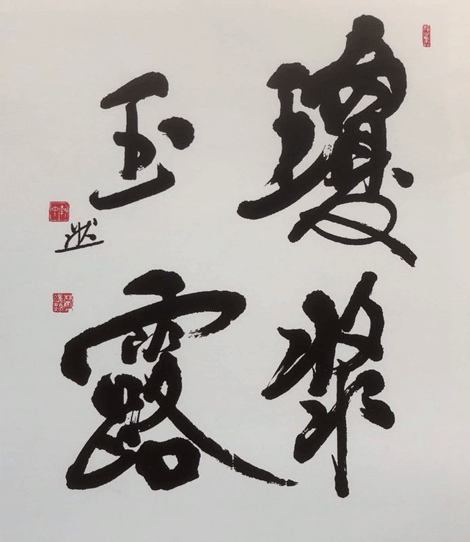 瓊漿
玉露